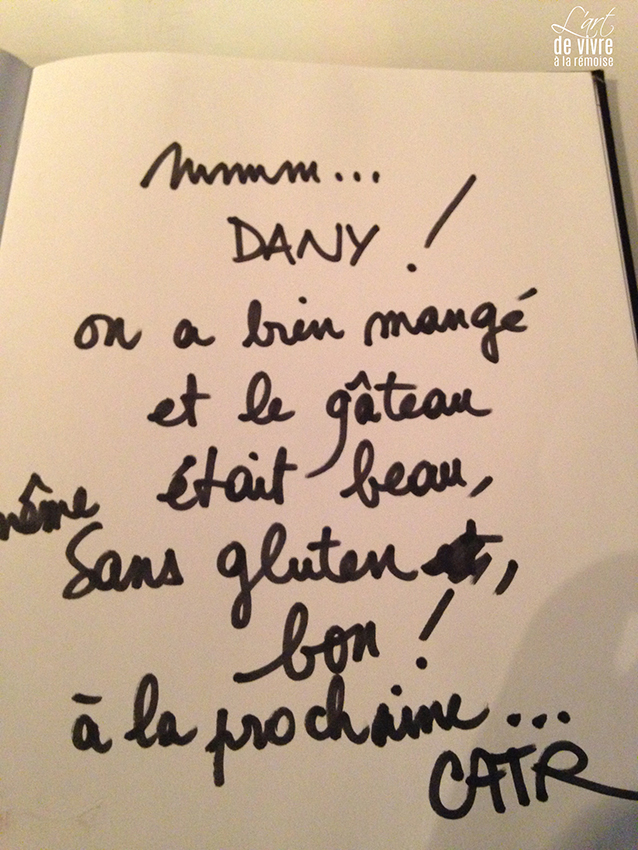 L'art
de vivre
à la rémoise
mmmm...
DANY !
on a bien mangé
et le gâteau
était beau,
même
Sans gluten ,
bon !
à la prochaine...
CATR